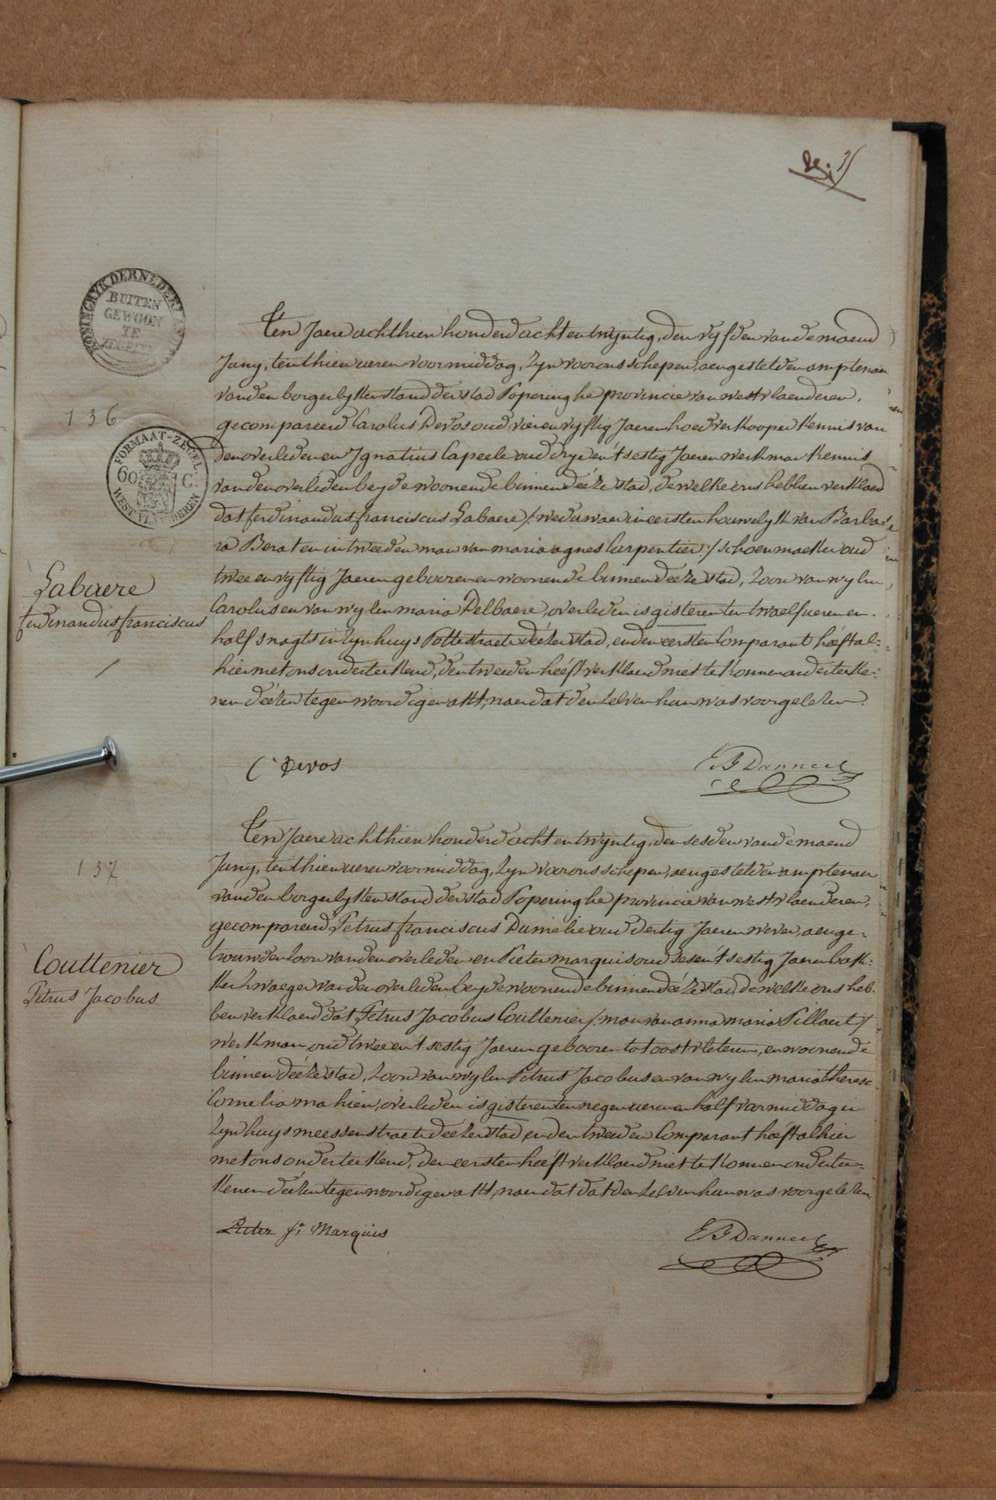 KONINGRYK DER NEDERL
BUITEN
GEWOON
TE
136
FORMAAT-ZEGEL
60 C.
WEST VLAENDEREN
Labaere
ferdinandus franciscus
Ten Jaere achthien honderd acht en twyntig, den vyfden van de maend
Juny, ten thien ueren voormiddag, zyn voor ons schepen, aengestelden amptenaer
van den borgerlyken stand der stad Poperinghe provincie van westvlaenderen,
gecompareerd Carolus Devos oud vier en vyftig Jaeren hoedverkooper kennis van
den overleden en Ignatius Capeele oud dry en t'sestig Jaeren werkman kennis
van den overleden beyde woonende binnen déeze stad, dewelke ons hebben verklaerd
dat ferdinandus franciscus Labaere /weduwaer in eersten houwelyk van Barba-
ra Beraten in tweeden man van maria agnes Carpentier:/ schoenmaeker oud
twee en vyftig Jaeren gebooren en woonende binnen déeze stad, zoon van wylen
Carolus en van wylen maria Delbaere, overleden is gisteren ten twaelf ueren en
half s nagts in zyn huys Pottestraete déezer stad, en den eersten Comparant heeft al-
hier met ons onderteekend, den tweeden heeft verklaerd niet te konnen onderteeke-
nen déezen tegenwoordigen akt, naer dat den zelven hun was voorgelezen.
C Devos
137
Couttenier
Petrus Jacobus
Ten Jaere achthien honderd acht en twyntig, den sesden van de maend
Juny, ten thien ueren voormiddag, zyn voor ons schepen, aengestelden amptenaer
van den borgerlyken stand der stad Poperinghe provincie van westvlaenderen,
gecompareerd Petrus franciscus Dumelie oud dertig Jaeren wever, aenge-
trouwden zoon van den overleden en Pieter marquis oud zes en t'sestig Jaeren bak-
ker zwaeger van den overleden beyde woonende binnen déeze stad dewelke ons heb-
ben verklaerd dat Petrus Jacobus Couttenier /man van anna maria Pillaert/
werkman oud twee en t'sestig Jaeren gebooren te oostvleteren, en woonende
binnen déeze stad, zoon van wylen Petrus Jacobus en van wylen maria therese
Cornelia mahieu, overleden is gisteren ten negen ueren en half voormiddag in
zyn huys meessenstraete deezer stad en den tweeden Comparant heeft alhier
met ons onderteekend, den eersten heeft verklaerd niet te konnen onderteke-
kenen déezen tegenwoordigen akt, naer dat dat den zelven hun was voorgelezen
Pieter fr Marquis